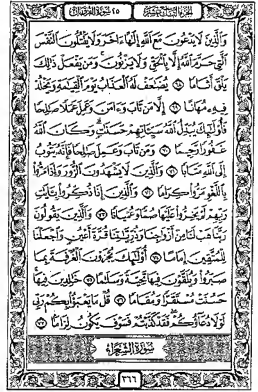 الجزء التاسع عشر ٢٥ سورة الفرقان
وَٱلَّذِينَ لَا يَدْعُونَ مَعَ ٱللَّهِ إِلَٰهًا ءَاخَرَ وَلَا يَقْتُلُونَ ٱلنَّفْسَ
ٱلَّتِى حَرَّمَ ٱللَّهُ إِلَّا بِٱلْحَقِّ وَلَا يَزْنُونَ وَمَن يَفْعَلْ ذَٰلِكَ
يَلْقَ أَثَامًا ٦٨ يُضَٰعَفْ لَهُ ٱلْعَذَابُ يَوْمَ ٱلْقِيَٰمَةِ وَيَخْلُدْ
فِيهِۦ مُهَانًا ٦٩ إِلَّا مَن تَابَ وَءَامَنَ وَعَمِلَ عَمَلًا صَٰلِحًا
فَأُوْلَٰٓئِكَ يُبَدِّلُ ٱللَّهُ سَيِّـَٔاتِهِمْ حَسَنَٰتٍ وَكَانَ ٱللَّهُ
غَفُورًا رَّحِيمًا ٧٠ وَمَن تَابَ وَعَمِلَ صَٰلِحًا فَإِنَّهُۥ يَتُوبُ
إِلَى ٱللَّهِ مَتَابًا ٧١ وَٱلَّذِينَ لَا يَشْهَدُونَ ٱلزُّورَ وَإِذَا مَرُّواْ
بِٱللَّغْوِ مَرُّواْ كِرَامًا ٧٢ وَٱلَّذِينَ إِذَا ذُكِّرُواْ بِـَٔايَٰتِ
رَبِّهِمْ لَمْ يَخِرُّواْ عَلَيْهَا صُمًّا وَعُمْيَانًا ٧٣ وَٱلَّذِينَ يَقُولُونَ
رَبَّنَا هَبْ لَنَا مِنْ أَزْوَٰجِنَا وَذُرِّيَّٰتِنَا قُرَّةَ أَعْيُنٍ وَٱجْعَلْنَا
لِلْمُتَّقِينَ إِمَامًا ٧٤ أُوْلَٰٓئِكَ يُجْزَوْنَ ٱلْغُرْفَةَ بِمَا
صَبَرُواْ وَيُلَقَّوْنَ فِيهَا تَحِيَّةً وَسَلَٰمًا ٧٥ خَٰلِدِينَ فِيهَا
حَسُنَتْ مُسْتَقَرًّا وَمُقَامًا ٧٦ قُلْ مَا يَعْبَؤُاْ بِكُمْ رَبِّى
لَوْلَا دُعَآؤُكُمْ فَقَدْ كَذَّبْتُمْ فَسَوْفَ يَكُونُ لِزَامًا ٧٧
سورة الشعراء
٣٦٦